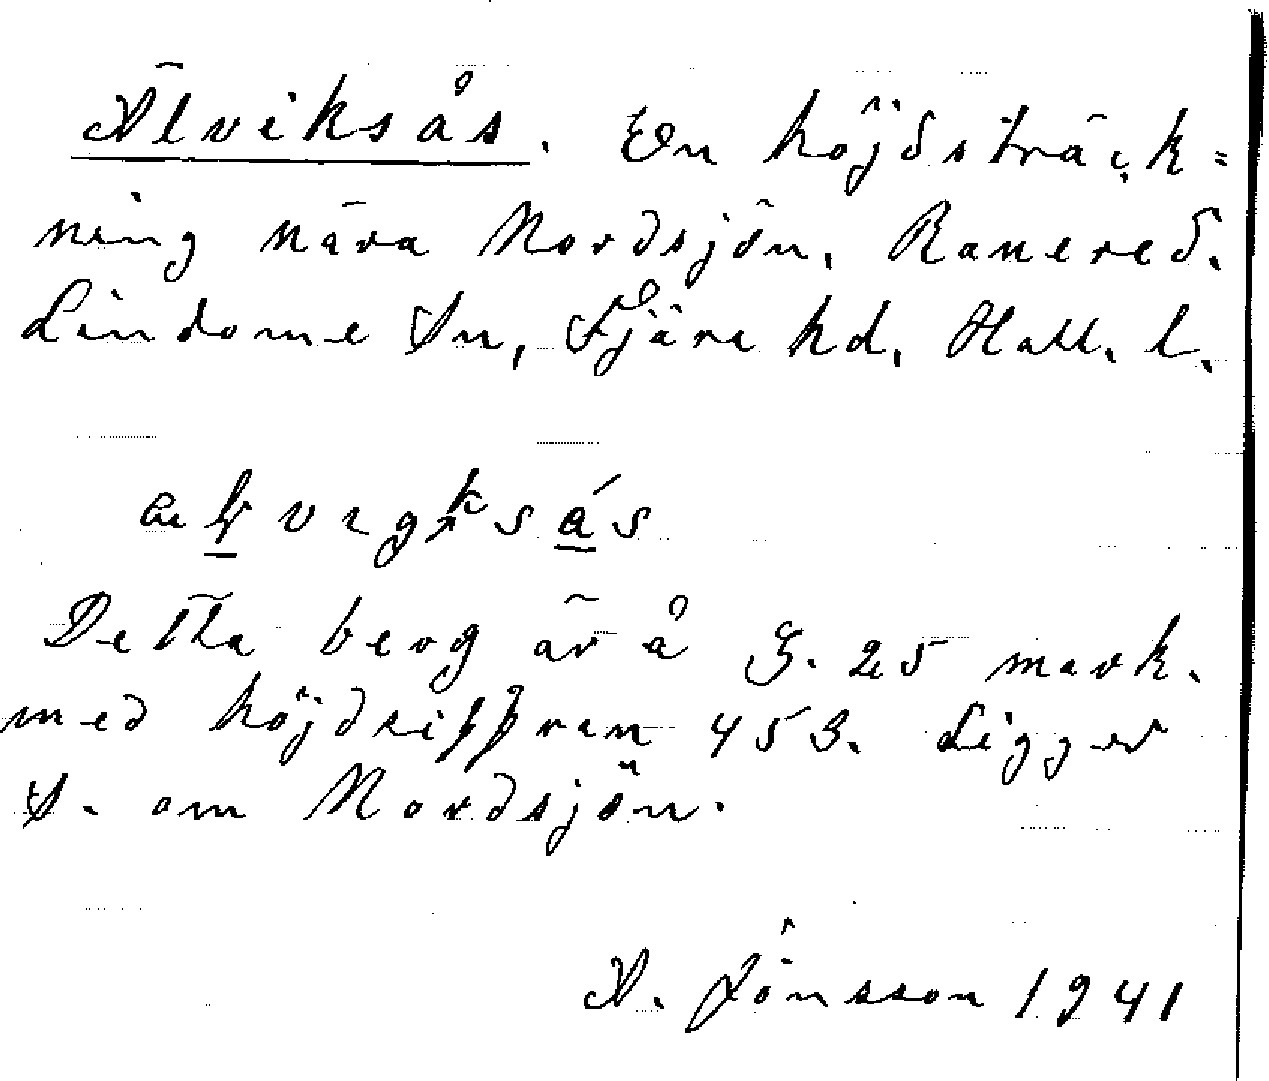 Älviksås. En höjdsträck=
ning nära Nordsjön, Ranered.
Lindome Sn, Fjäre hd, Hall. l.
Detta berg är å G. 25 mark.
med höjdsiffran 453. Ligger
S. om Nordsjön.
A. Jönsson 1941